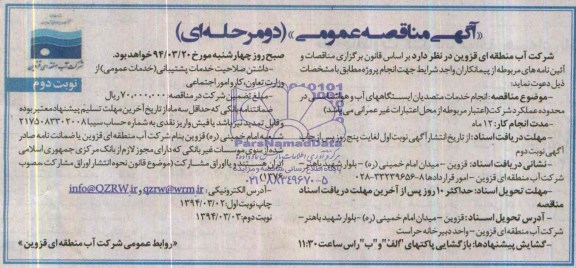 «آگهی مناقصه عمومی» (دو مرحله ای)
شرکت آب منطقه ای قزوین
نوبت دوم
شرکت آب منطقه ای قزوین در نظر دارد بر اساس قانون برگزاری مناقصات و
آئین نامه های مربوطه از پیمانکاران واجد شرایط جهت انجام پروژه مطابق با مشخصات
ذیل دعوت نماید:
-موضوع مناقصه: انجام خدمات متصدیان ایستگاههای آب و هواشناسی در
محدوده عملیات شرکت (اعتبار مربوطه از محل اعتبارات غیر عمرانی می باشد)
-مدت انجام کار: ۱۲ ماه
-مهلت دریافت اسناد: از تاریخ انتشار آگهی نوبت اول لغایت پنج روز پس از چاپ
آگهی نوبت دوم
-نشانی دریافت اسناد: قزوین - میدان امام خمینی (ره) - بلوار شهید باهنر -
شرکت آب منطقه ای قزوین - امور قراردادها ۸-۳۳۲۳۹۶۵۶-۰۲۸
-مهلت تحویل اسناد: حداکثر ۱۰ روز پس از آخرین مهلت دریافت اسناد
مناقصه
-آدرس تحویل اسناد: قزوین - میدان امام خمینی (ره) - بلوار شهید باهنر -
شرکت آب منطقه ای قزوین - واحد دبیرخانه حراست
-گشایش پیشنهادها: بازگشایی پاکتهای "الف" و "ب" راس ساعت ۱۱:۳۰
صبح روز چهارشنبه مورخ ۹۴/۰۳/۲۰ خواهد بود.
-داشتن صلاحیت خدمات پشتیبانی (خدمات عمومی) از
وزارت تعاون، کار و امور اجتماعی
-مبلغ تضمین شرکت در مناقصه ۷۰,۰۰۰,۰۰۰ ریال
ضمانتنامه بانکی که حداقل سه ماه از تاریخ آخرین مهلت تسلیم پیشنهاد معتبر بوده
و قابل تمدید نیز باشد یا فیش واریز نقدی به شماره حساب سیبا ۲۱۷۵۰۸۳۳۰۲۰۰۸
شعبه امام خمینی (ره) قزوین بنام شرکت آب منطقه ای قزوین یا ضمانت نامه صادر
شده از سوی موسسات غیر بانکی که دارای مجوز لازم از بانک مرکزی جمهوری اسلامی
ایران هستند و یا اوراق مشارکت (موضوع قانون نحوه انتشار اوراق مشارکت مصوب
۱۳۷۶)
-آدرس الکترونیکی: qzrw@wrm.ir و info@QZRW.ir
چاپ نوبت اول: ۱۳۹۴/۰۳/۰۲
نوبت دوم: ۱۳۹۴/۰۳/۰۳
«روابط عمومی شرکت آب منطقه ای قزوین»
ParsNamadData
۰۲۱-۸۸۳۴۹۶۷۰-۵